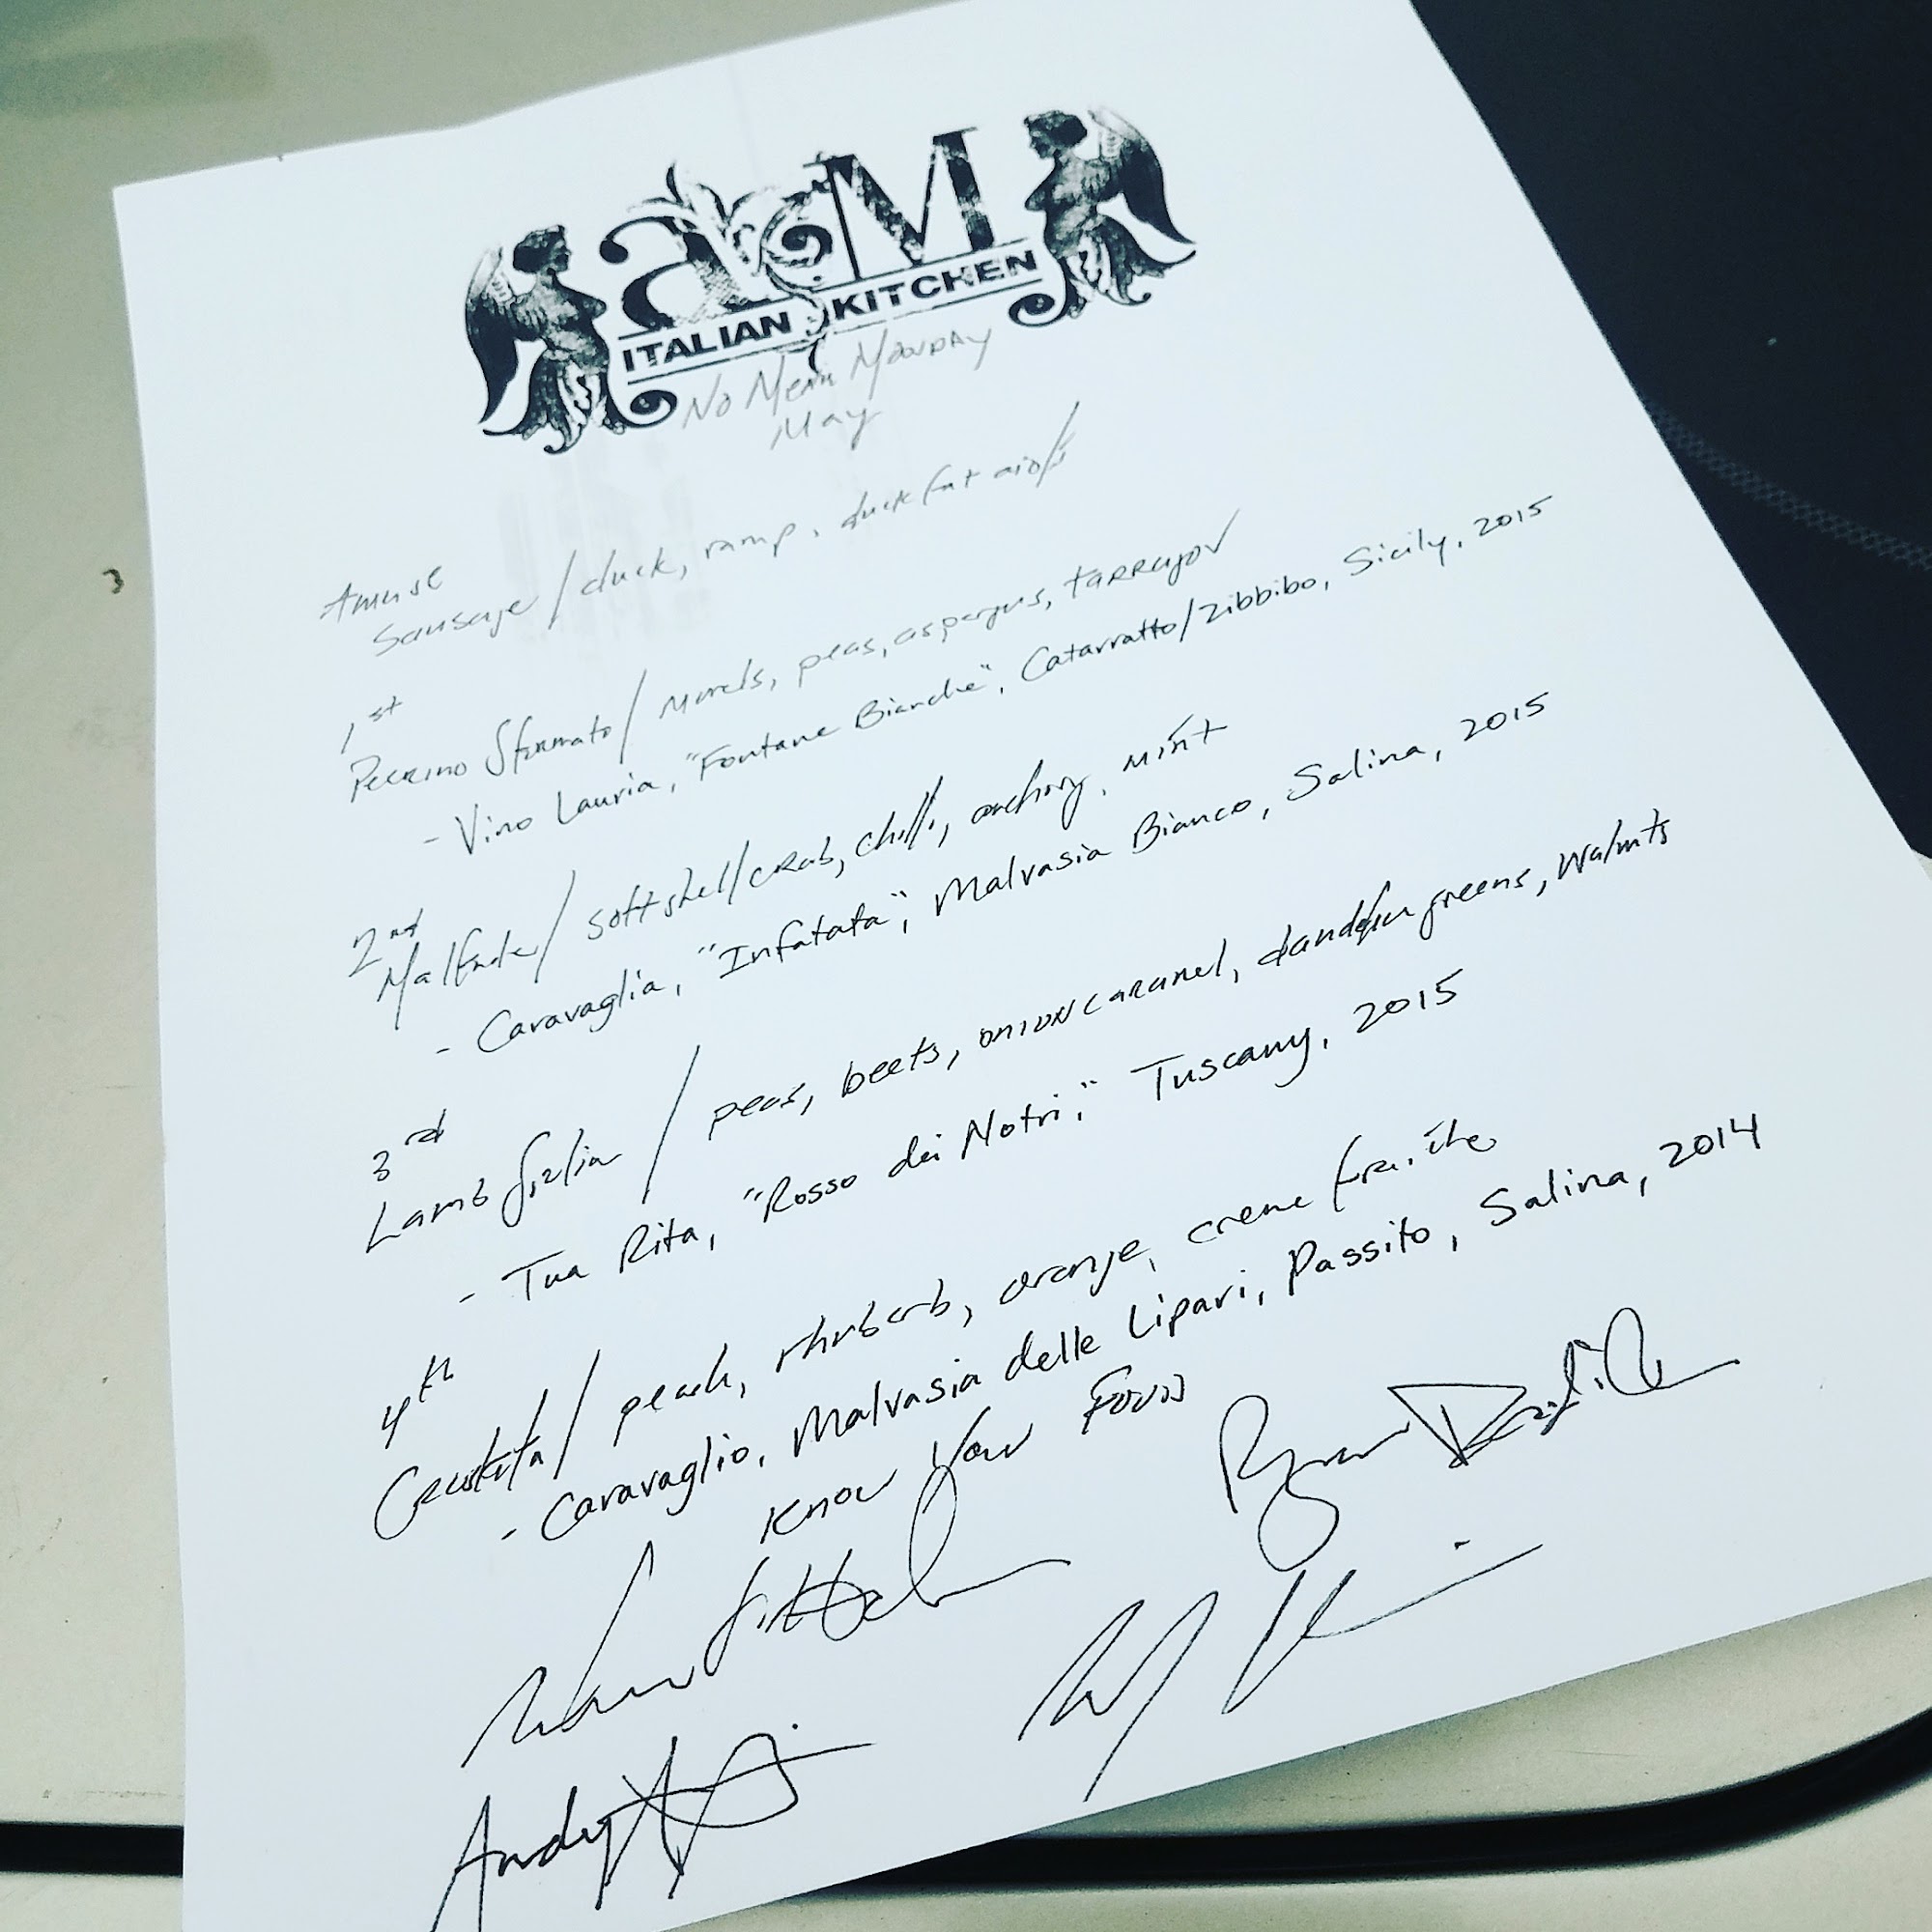 aM
ITALIAN KITCHEN
No Menu Monday
May
Amuse
Sausage / duck, ramp, duck fat aioli
1st
Pecorino Sformato / morels, peas, aspergus, tarragon
- Vino Lauria, "Fontane Bianche", Catarratto/Zibbibo, Sicily, 2015
2nd
Malfade / softshell crab, chili, anchovy, mint
- Caravaglia, "Infatata", Malvasia Bianco, Salina, 2015
3rd
Lamb / peas, beets, onion caramel, dandelion greens, Walnuts
- Tua Rita, "Rosso dei Notri," Tuscany, 2015
4th
Crostata / peach, rhubarb, orange, creme fraiche
- Caravaglio, Malvasia delle Lipari, Passito, Salina, 2014
Know Your Food
Andy